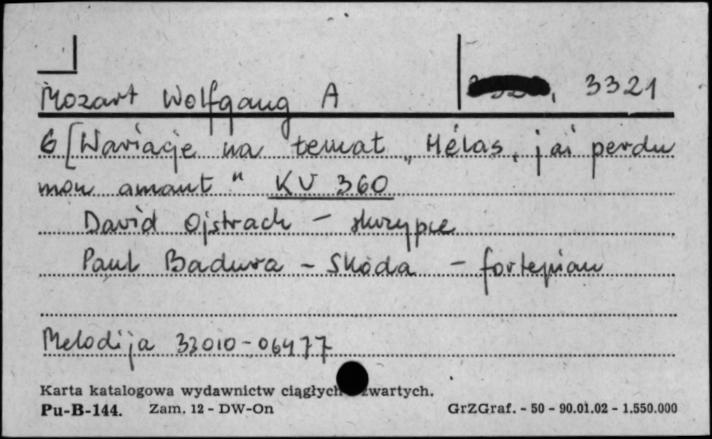 Mozart Wolfgang A 3321
6 [Wariacje na temat „Hélas, j'ai perdu
mon amant" KV 360
David Ojstrach - skrzypce
Paul Badura - Skoda - fortepian
Melodija 33010-06477
Karta katalogowa wydawnictw ciągłych zwartych.
Pu-B-144. Zam. 12 - DW-On GrZGraf. - 50 - 90.01.02 - 1.550.000